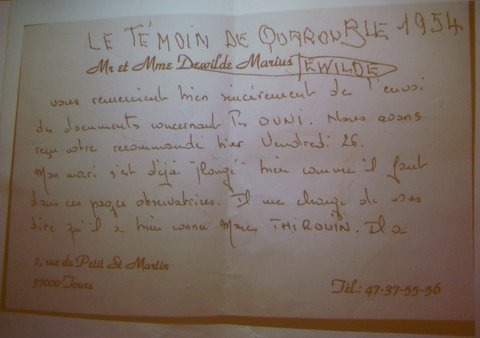 LE TÉMOIN DE QUAROUBLE 1954
Mr et Mme Dewilde Marius EWILDE
vous remercient bien sincèrement de l'envoi
des documents concernant les OVNI. Nous avons
reçu votre recommandé hier Vendredi 26.
Mon mari s'est déjà "plongé" bien comme il faut
dans ces pages observatrices. Il me charge de vous
dire qu'il a bien connu Marc THIROUIN. Il a
2, rue du Petit St Martin
37000 Tours
Tél.: 47-37-55-56